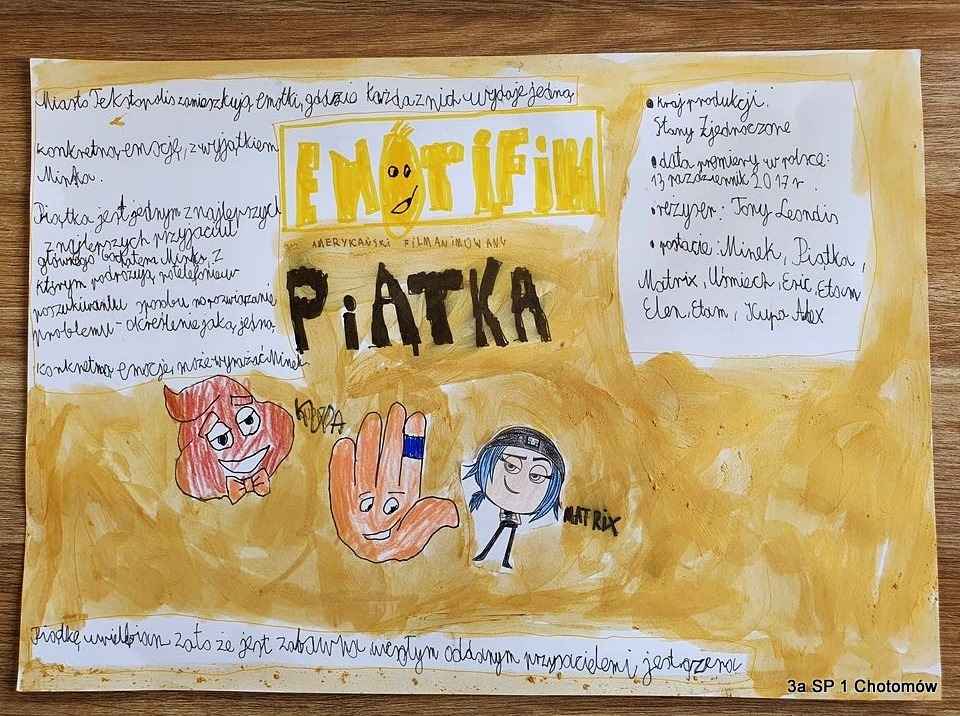 Miasto Tekstopolis zamieszkują emotki, gdzie każda z nich wydaje jedną
konkretną emocję, z wyjątkiem
Minka.
Piątka jest jednym z najlepszych
z najlepszych przyjaciół
głównego bohatera Minka, z
którym podróżują po telefonie w
poszukiwaniu sposobu na rozwiązanie
problemu - określenie jaką jedną
konkretną emocję, może wyrażać Minek.
EMOTIFILM
AMERYKAŃSKI FILM ANIMOWANY
PIĄTKA
• kraj produkcji:
Stany Zjednoczone
• data premiery w polsce:
13 październik 2017 r.
• reżyser: Tony Leondis
• postacie: Minek, Piątka,
Matrix, Uśmiech, Eric, Etom
Elen, Etam, Kupa Alex
KUPA
MATRIX
Piątkę uwielbiam za to że jest zabawna wesołym oddanym przyjacielem i jest szczera
3a SP 1 Chotomów